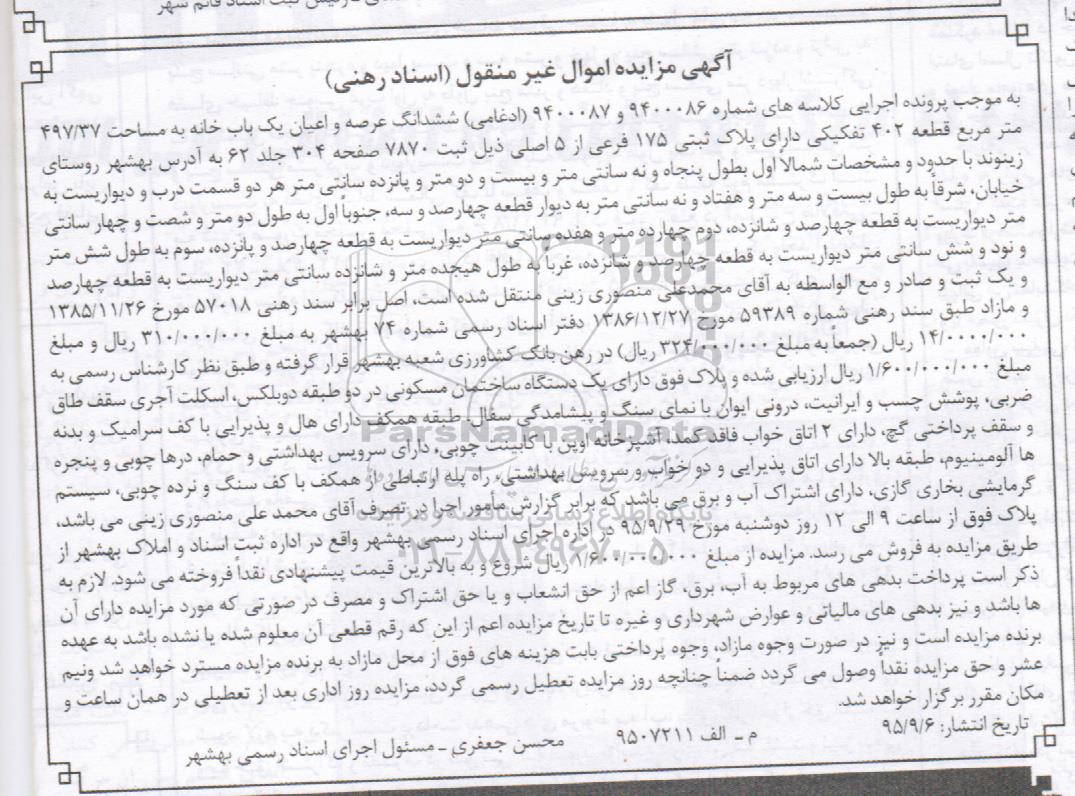 آگهی مزایده اموال غیر منقول (اسناد رهنی)
به موجب پرونده اجرایی کلاسه های شماره ۹۴۰۰۰۸۶ و ۹۴۰۰۰۸۷ (ادغامی) ششدانگ عرصه و اعیان یک باب خانه به مساحت ۴۹۷/۳۷
متر مربع قطعه ۴۰۲ تفکیکی دارای پلاک ثبتی ۱۷۵ فرعی از ۵ اصلی ذیل ثبت ۷۸۷۰ صفحه ۳۰۴ جلد ۶۲ به آدرس بهشهر روستای
زینوند با حدود و مشخصات شمالاً اول بطول پنجاه و نه سانتی متر و بیست و دو متر و پانزده سانتی متر هر دو قسمت درب و دیواریست به
خیابان، شرقاً به طول بیست و سه متر و هفتاد و نه سانتی متر به دیوار قطعه چهارصد و سه، جنوباً اول به طول دو متر و شصت و چهار سانتی
متر دیواریست به قطعه چهارصد و شانزده، دوم چهارده متر و هفده سانتی متر دیواریست به قطعه چهارصد و پانزده، سوم به طول شش متر
و نود و شش سانتی متر دیواریست به قطعه چهارصد و شانزده، غرباً به طول هیجده متر و شانزده سانتی متر دیواریست به قطعه چهارصد
و یک ثبت و صادر و مع الواسطه به آقای محمدعلی منصوری زینی منتقل شده است، اصل برابر سند رهنی ۵۷۰۱۸ مورخ ۱۳۸۵/۱۱/۲۶
و مازاد طبق سند رهنی شماره ۵۹۳۸۹ مورخ ۱۳۸۶/۱۲/۲۷ دفتر اسناد رسمی شماره ۷۴ بهشهر به مبلغ ۳۱۰/۰۰۰/۰۰۰ ریال و مبلغ
۱۴/۰۰۰۰/۰۰۰ ریال (جمعاً به مبلغ ۳۲۴/۰۰۰/۰۰۰ ریال) در رهن بانک کشاورزی شعبه بهشهر قرار گرفته و طبق نظر کارشناس رسمی به
مبلغ ۱/۶۰۰/۰۰۰/۰۰۰ ریال ارزیابی شده و پلاک فوق دارای یک دستگاه ساختمان مسکونی در دو طبقه دوبلکس، اسکلت آجری سقف طاق
ضربی، پوشش چسب و ایرانیت، درونی ایوان با نمای سنگ و پیشامدگی سفال، طبقه همکف دارای هال و پذیرایی با کف سرامیک و بدنه
و سقف پرداختی گچ، دارای ۲ اتاق خواب فاقد کمد، آشپزخانه اوپن با کابینت چوبی، دارای سرویس بهداشتی و حمام، درها چوبی و پنجره
ها آلومینیوم، طبقه بالا دارای اتاق پذیرایی و دو خواب و سرویس بهداشتی، راه پله ارتباطی از همکف با کف سنگ و نرده چوبی، سیستم
گرمایشی بخاری گازی، دارای اشتراک آب و برق می باشد که برابر گزارش مأمور اجرا در تصرف آقای محمد علی منصوری زینی می باشد،
پلاک فوق از ساعت ۹ الی ۱۲ روز دوشنبه مورخ ۹۵/۹/۲۹ در اداره اجرای اسناد رسمی بهشهر واقع در اداره ثبت اسناد و املاک بهشهر از
طریق مزایده به فروش می رسد. مزایده از مبلغ ۱/۶۰۰/۰۰۰/۰۰۰ ریال شروع و به بالاترین قیمت پیشنهادی نقداً فروخته می شود. لازم به
ذکر است پرداخت بدهی های مربوط به آب، برق، گاز اعم از حق انشعاب و یا حق اشتراک و مصرف در صورتی که مورد مزایده دارای آن
ها باشد و نیز بدهی های مالیاتی و عوارض شهرداری و غیره تا تاریخ مزایده اعم از این که رقم قطعی آن معلوم شده یا نشده باشد به عهده
برنده مزایده است و نیز در صورت وجوه مازاد، وجوه پرداختی بابت هزینه های فوق از محل مازاد به برنده مزایده مسترد خواهد شد ونیم
عشر و حق مزایده نقداً وصول می گردد ضمناً چنانچه روز مزایده تعطیل رسمی گردد، مزایده روز اداری بعد از تعطیلی در همان ساعت و
مکان مقرر برگزار خواهد شد.
تاریخ انتشار: ۹۵/۹/۶
م ـ الف ۹۵۰۷۲۱۱
محسن جعفری ـ مسئول اجرای اسناد رسمی بهشهر
ParsNamadData
پایگاه اطلاع رسانی مناقصه و مزایده
۰۲۱-۸۸۳۴۹۶۷۰-۵